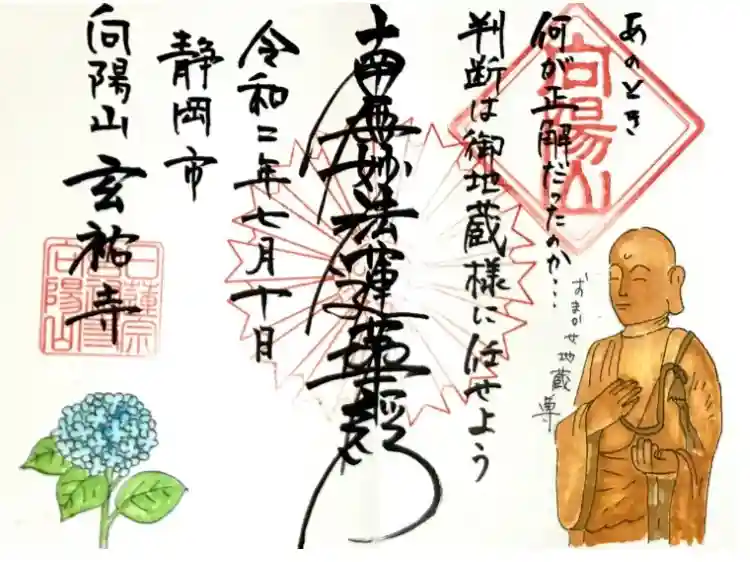 あのとき
何が正解だったのか…
判断は御地蔵様に任せよう
おまかせ地蔵尊
向陽山
南無妙法蓮華経
令和二年七月十日
静岡市
向陽山 玄祐寺
日蓮宗
向陽山